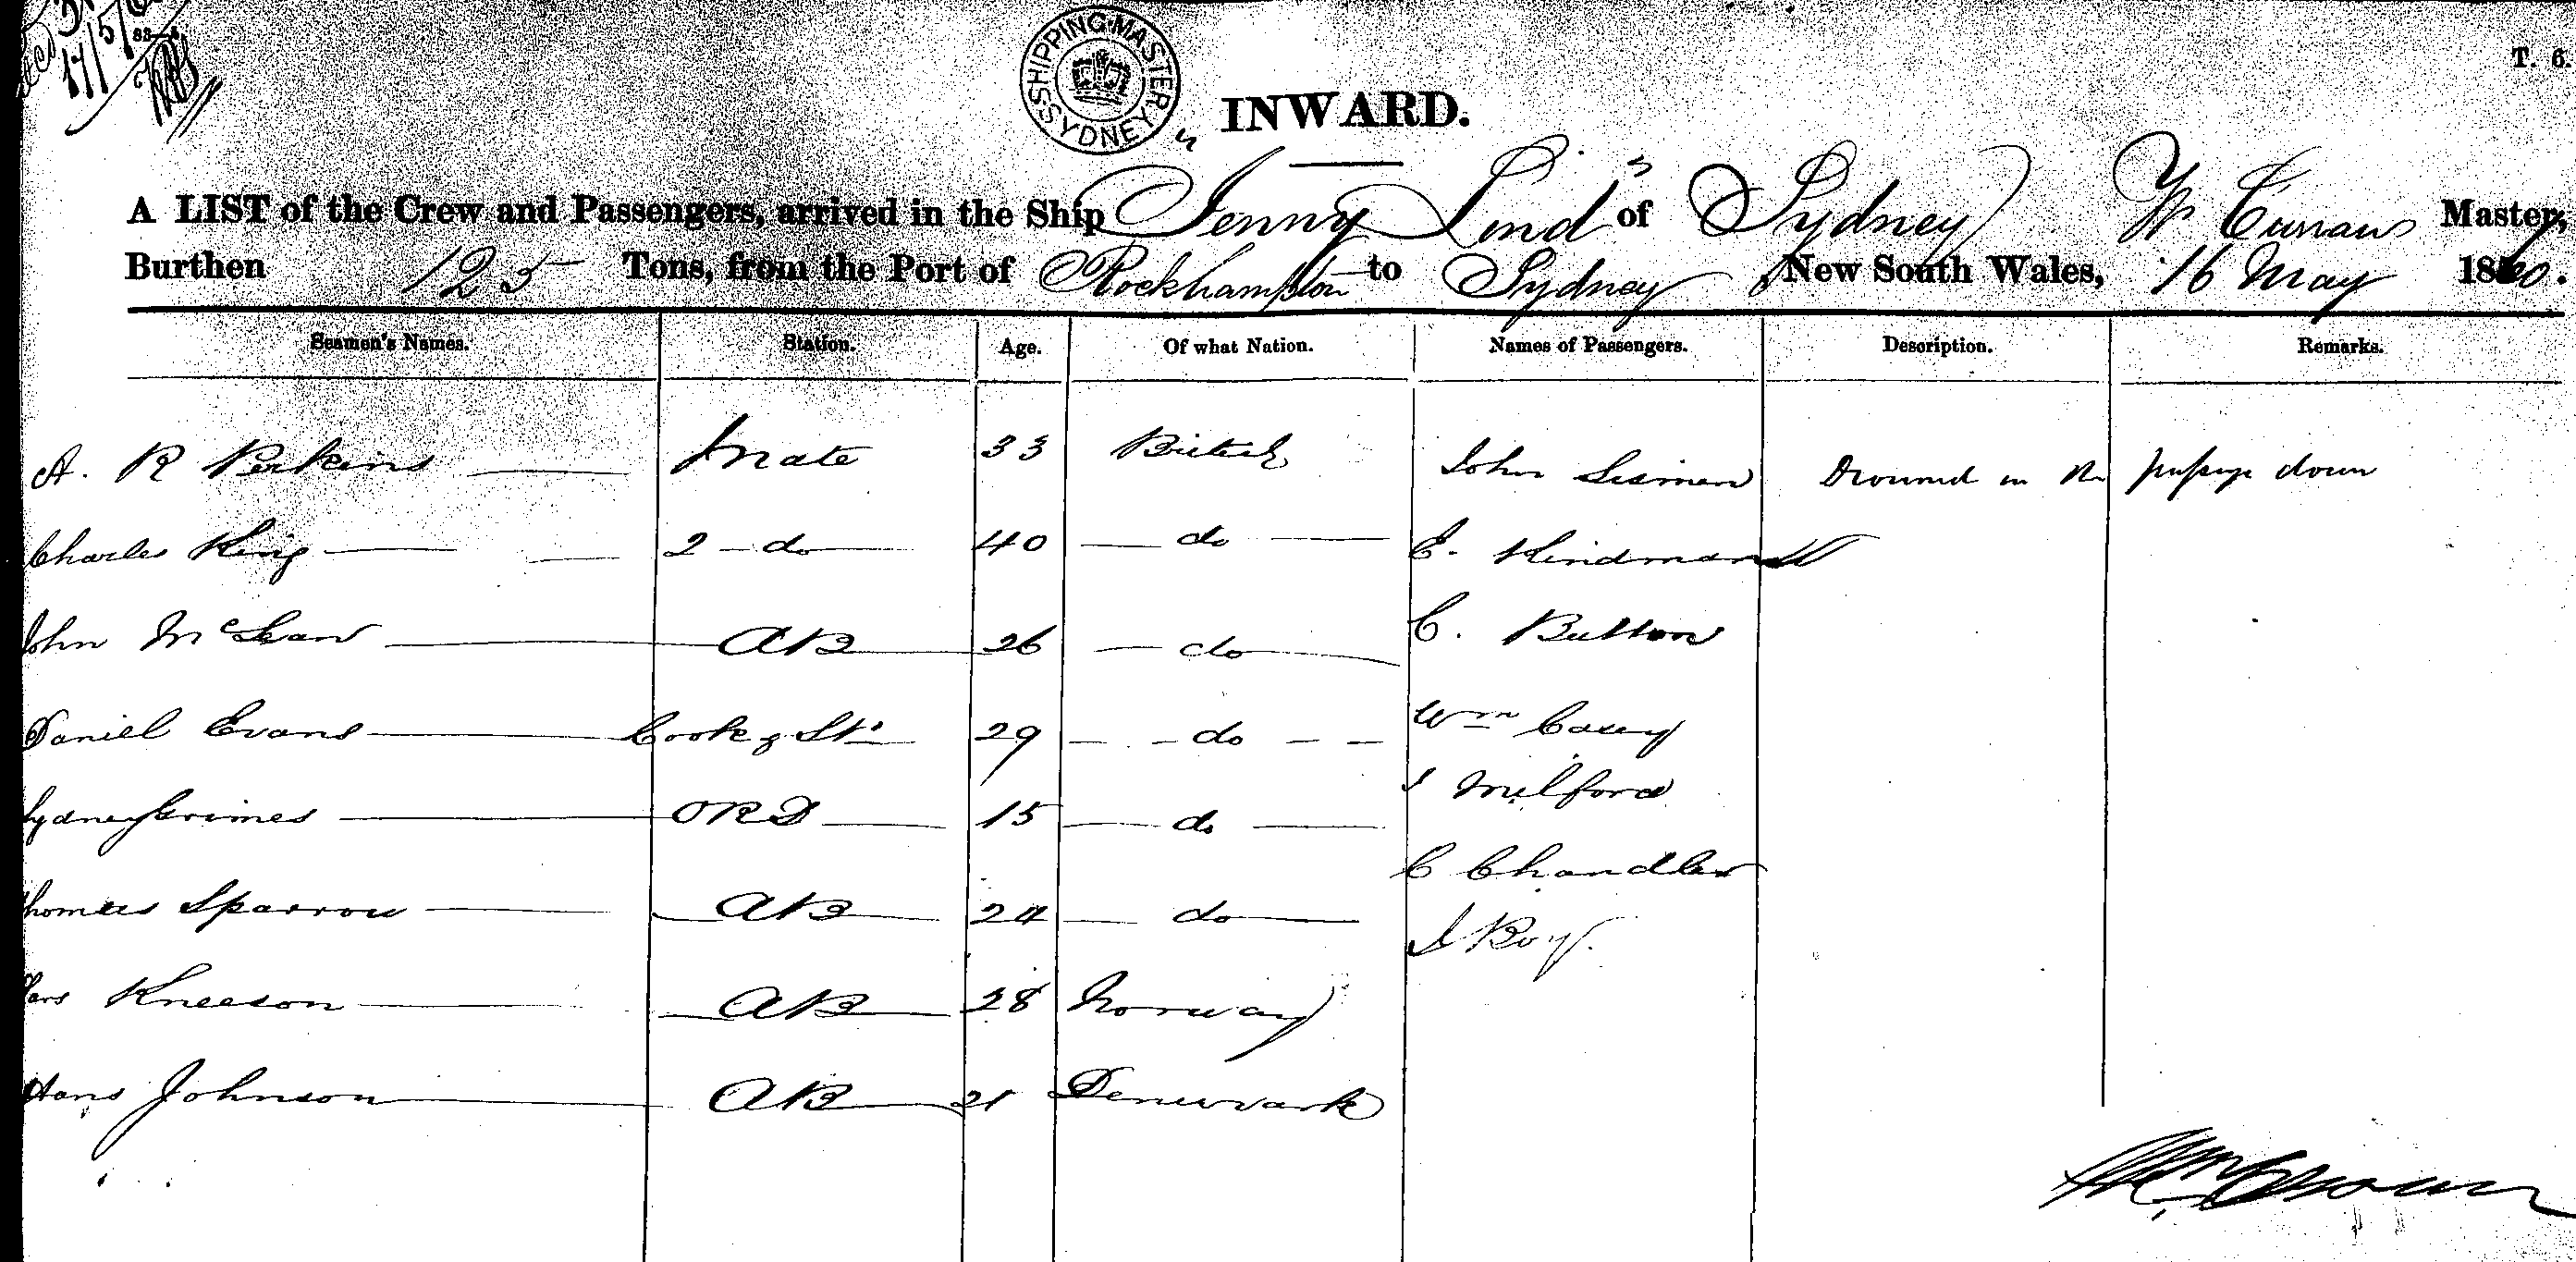 17/5/60
SHIPPING MASTER SYDNEY
T. 6.
INWARD.
A LIST of the Crew and Passengers, arrived in the Ship "Jenny Lind" of Sydney Master,
Burthen 125 Tons, from the Port of Rockhampton to Sydney New South Wales, 16 May 1860.
Seamen's Names. Station. Age. Of what Nation. Names of Passengers. Description. Remarks.
A. R Perkins Mate 33 British John Sisman Drowned in the passage down
Charles King 2 do 40 do C. Hindmarsh
John McLean AB 26 do C. Button
Daniel Evans Cook & St 29 do Wm Casey
Sydney Grimes ORD 15 do J Milford
Thomas Sparrow AB 24 do C Chandler
J Roy.
Kneeson AB 28 Norway
Hans Johnson AB 21 Denmark